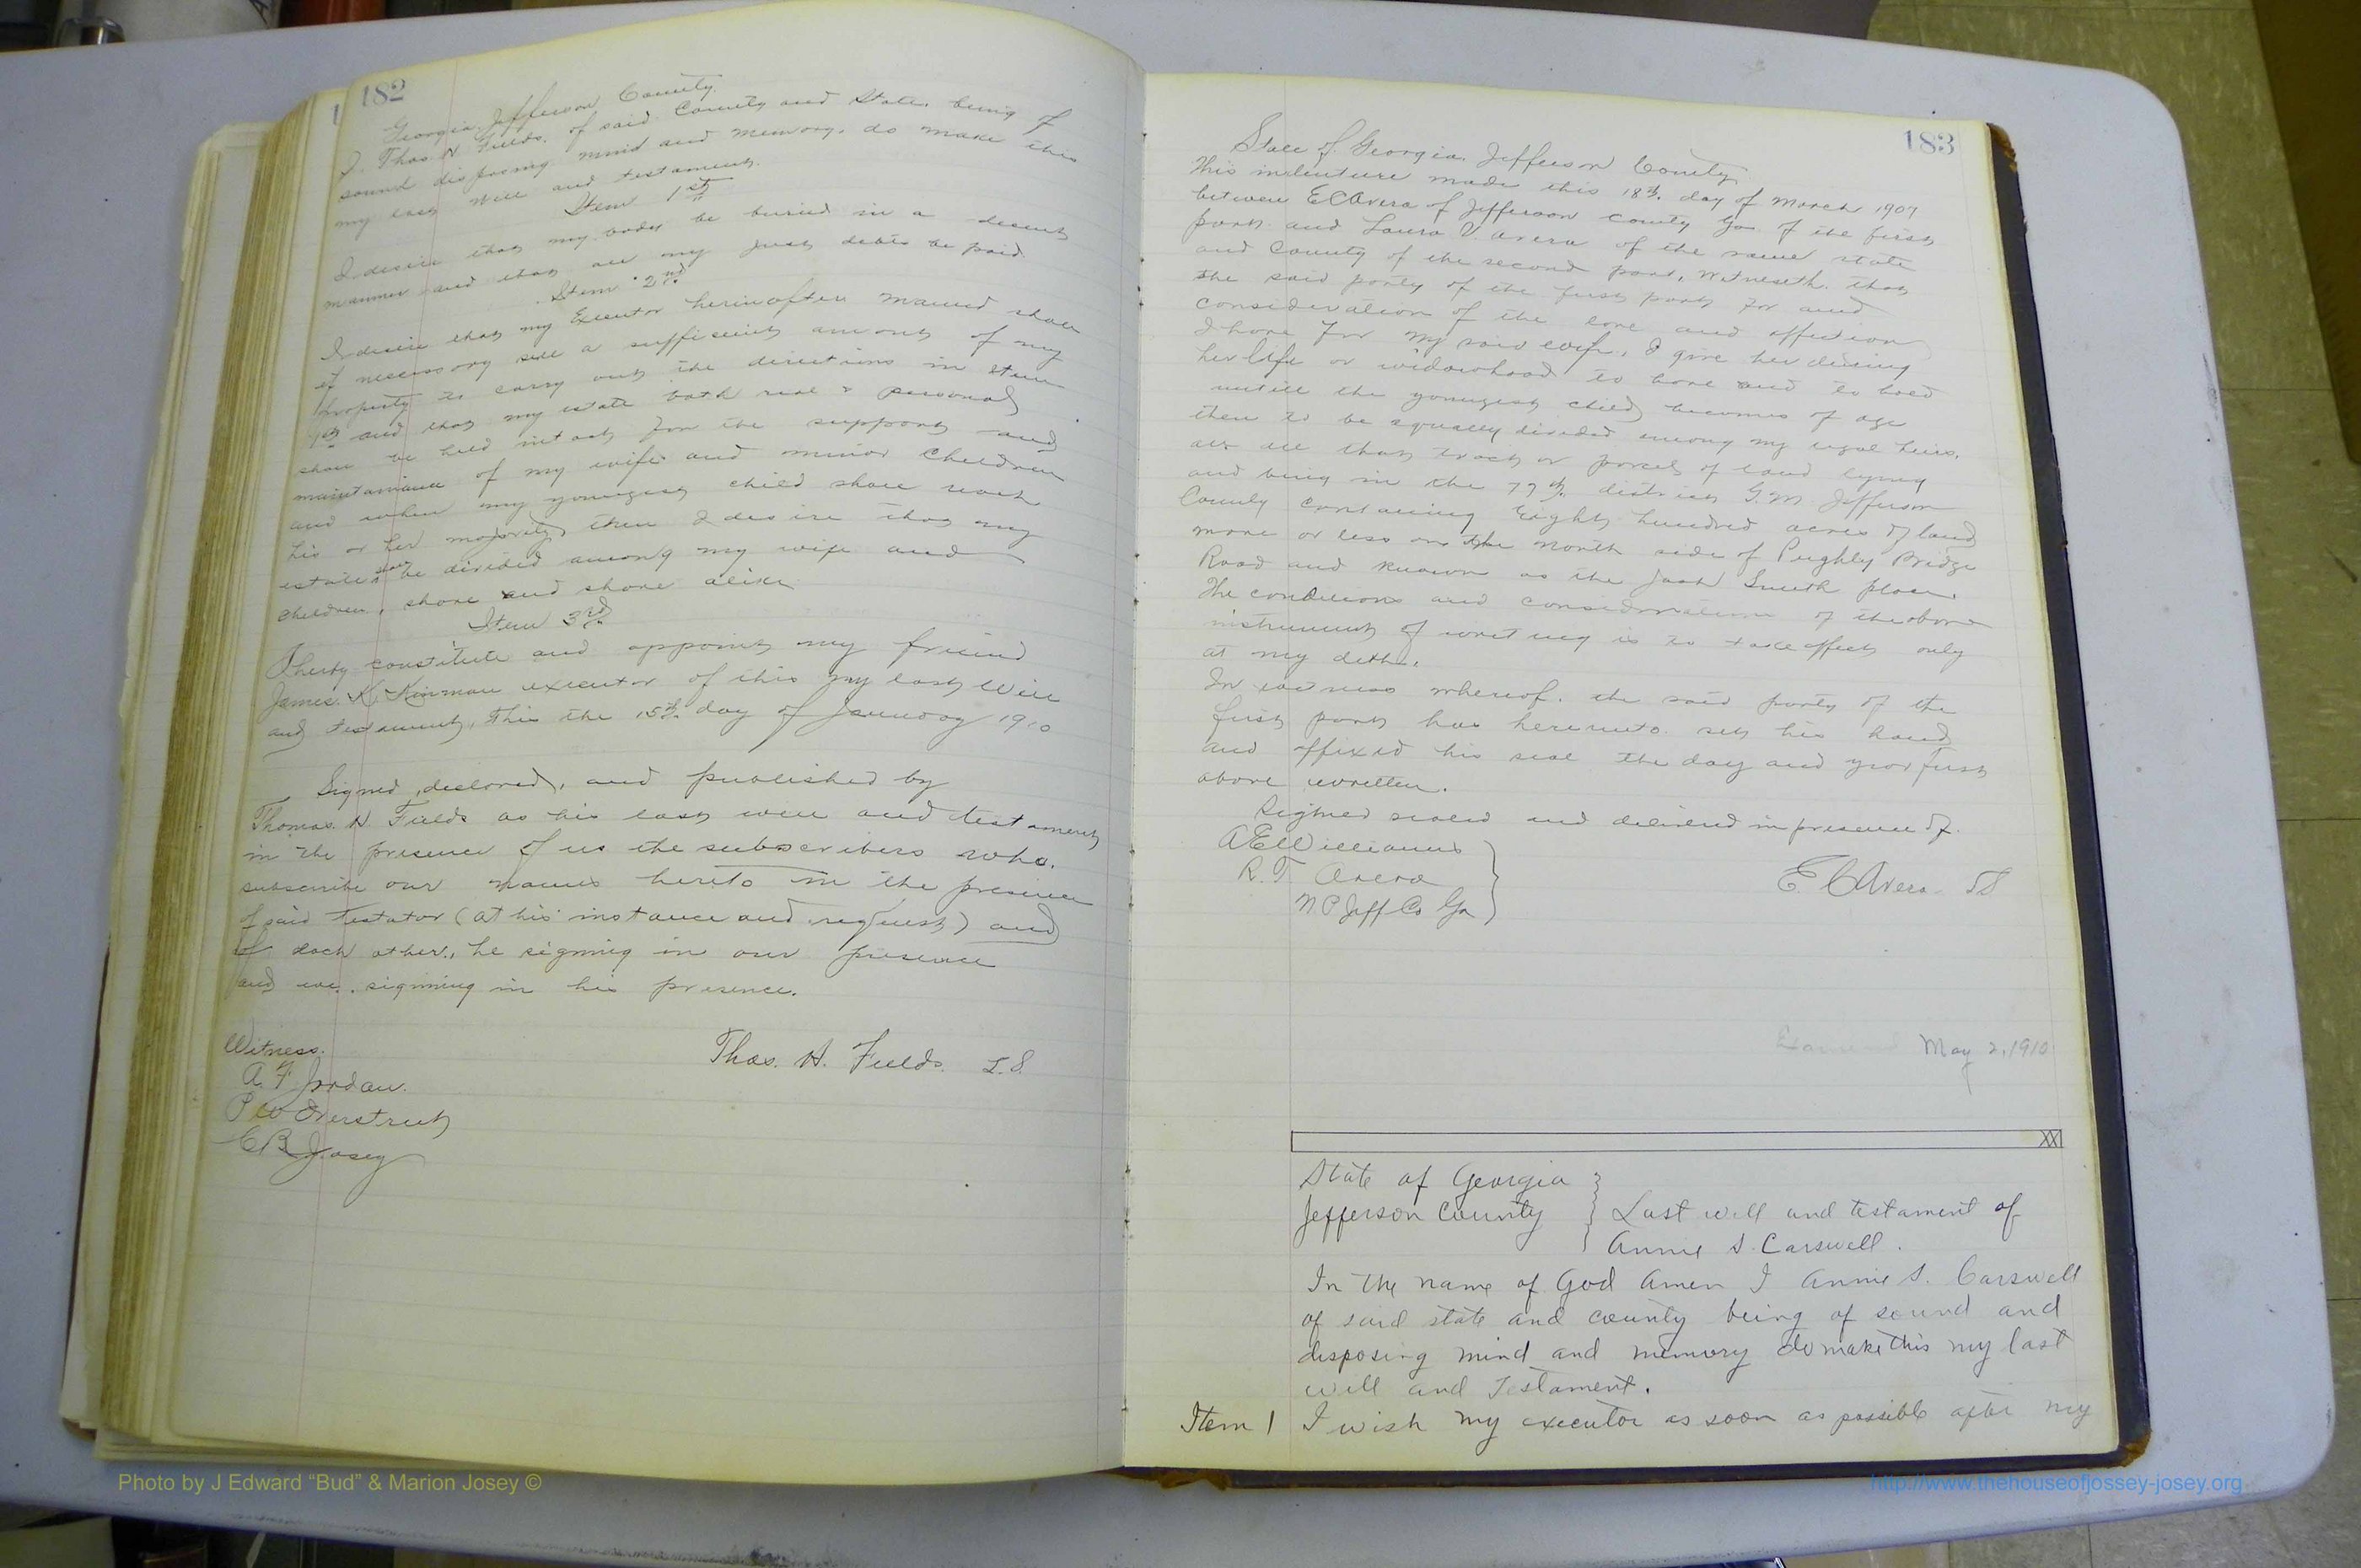 182
Georgia, Jefferson County.
I, Thos. H Fields, of said County and State, being of
sound disposing mind and memory, do make this
my last will and testament.
Item 1st
I desire that my body be buried in a decent
manner and that all my just debts be paid
Item 2nd
I desire that my Executor herinafter named shall
if necessary sell a sufficient amount of my
property to carry out the directions in Item
1st and that my estate both real & personal
shall be held intact for the support and
maintainance of my wife and minor children
and when my youngest child shall reach
his or her majority, then I desire that my
estate shall be divided among my wife and
children, share and share alike
Item 3rd
I herby constitute and appoint my friend
James K. Kinman executor of this my last will
and testament, this the 15th day of January 1910
Signed, declared, and published by
Thomas. H. Fields as his last will and testament
in the presence of us the subscribers who.
subscribe our names hereto in the presence
of said Testator (at his instance and request) and
of each other, he signing in our presence
and we. signing in his presence.
Witness. Thos. H. Fields. L.S.
A. F. Jordan.
P W Overstreet
C B Josey
183
State of Georgia. Jefferson County
This indenture made this 18th. day of March 1907
between E C Avera of Jefferson County Ga of the first
part and Laura V. Avera of the same state
and County of the second part, Witnesseth. that
the said party of the first part for and
consideration of the love and affection
I have for my said wife, I give her during
her life or widowhood to have and to hold
untill the youngest child becomes of age
then to be equally divided among my legal heirs.
all that tract or parcel of land lying
and being in the 77th. district G.M. Jefferson
County containing Eighty hundred acres of land
more or less on the north side of Pughly Bridge
Road and known as the Smith place.
The conditions and consideration of the above
instrument of writing is to take affect only
at my deth.
In witness whereof. the said party of the
first part has hereunto set his hand
and affixed his seal the day and year first
above written.
Signed sealed and delivered in presence of.
A E Williams
R. T. Avera E. C Avera LS
N. P Jeff Co Ga
Examined May 2, 1910
XX
State of Georgia
Jefferson County Last will and testament of
Annie S. Carswell.
In the name of God Amen I Annie S. Carswell
of said state and county being of sound and
disposing mind and memory do make this my last
will and Testament.
Item 1 I wish my executor as soon as possible after my
Photo by J Edward “Bud” & Marion Josey ©
http://www.thehouseofjossey-josey.org